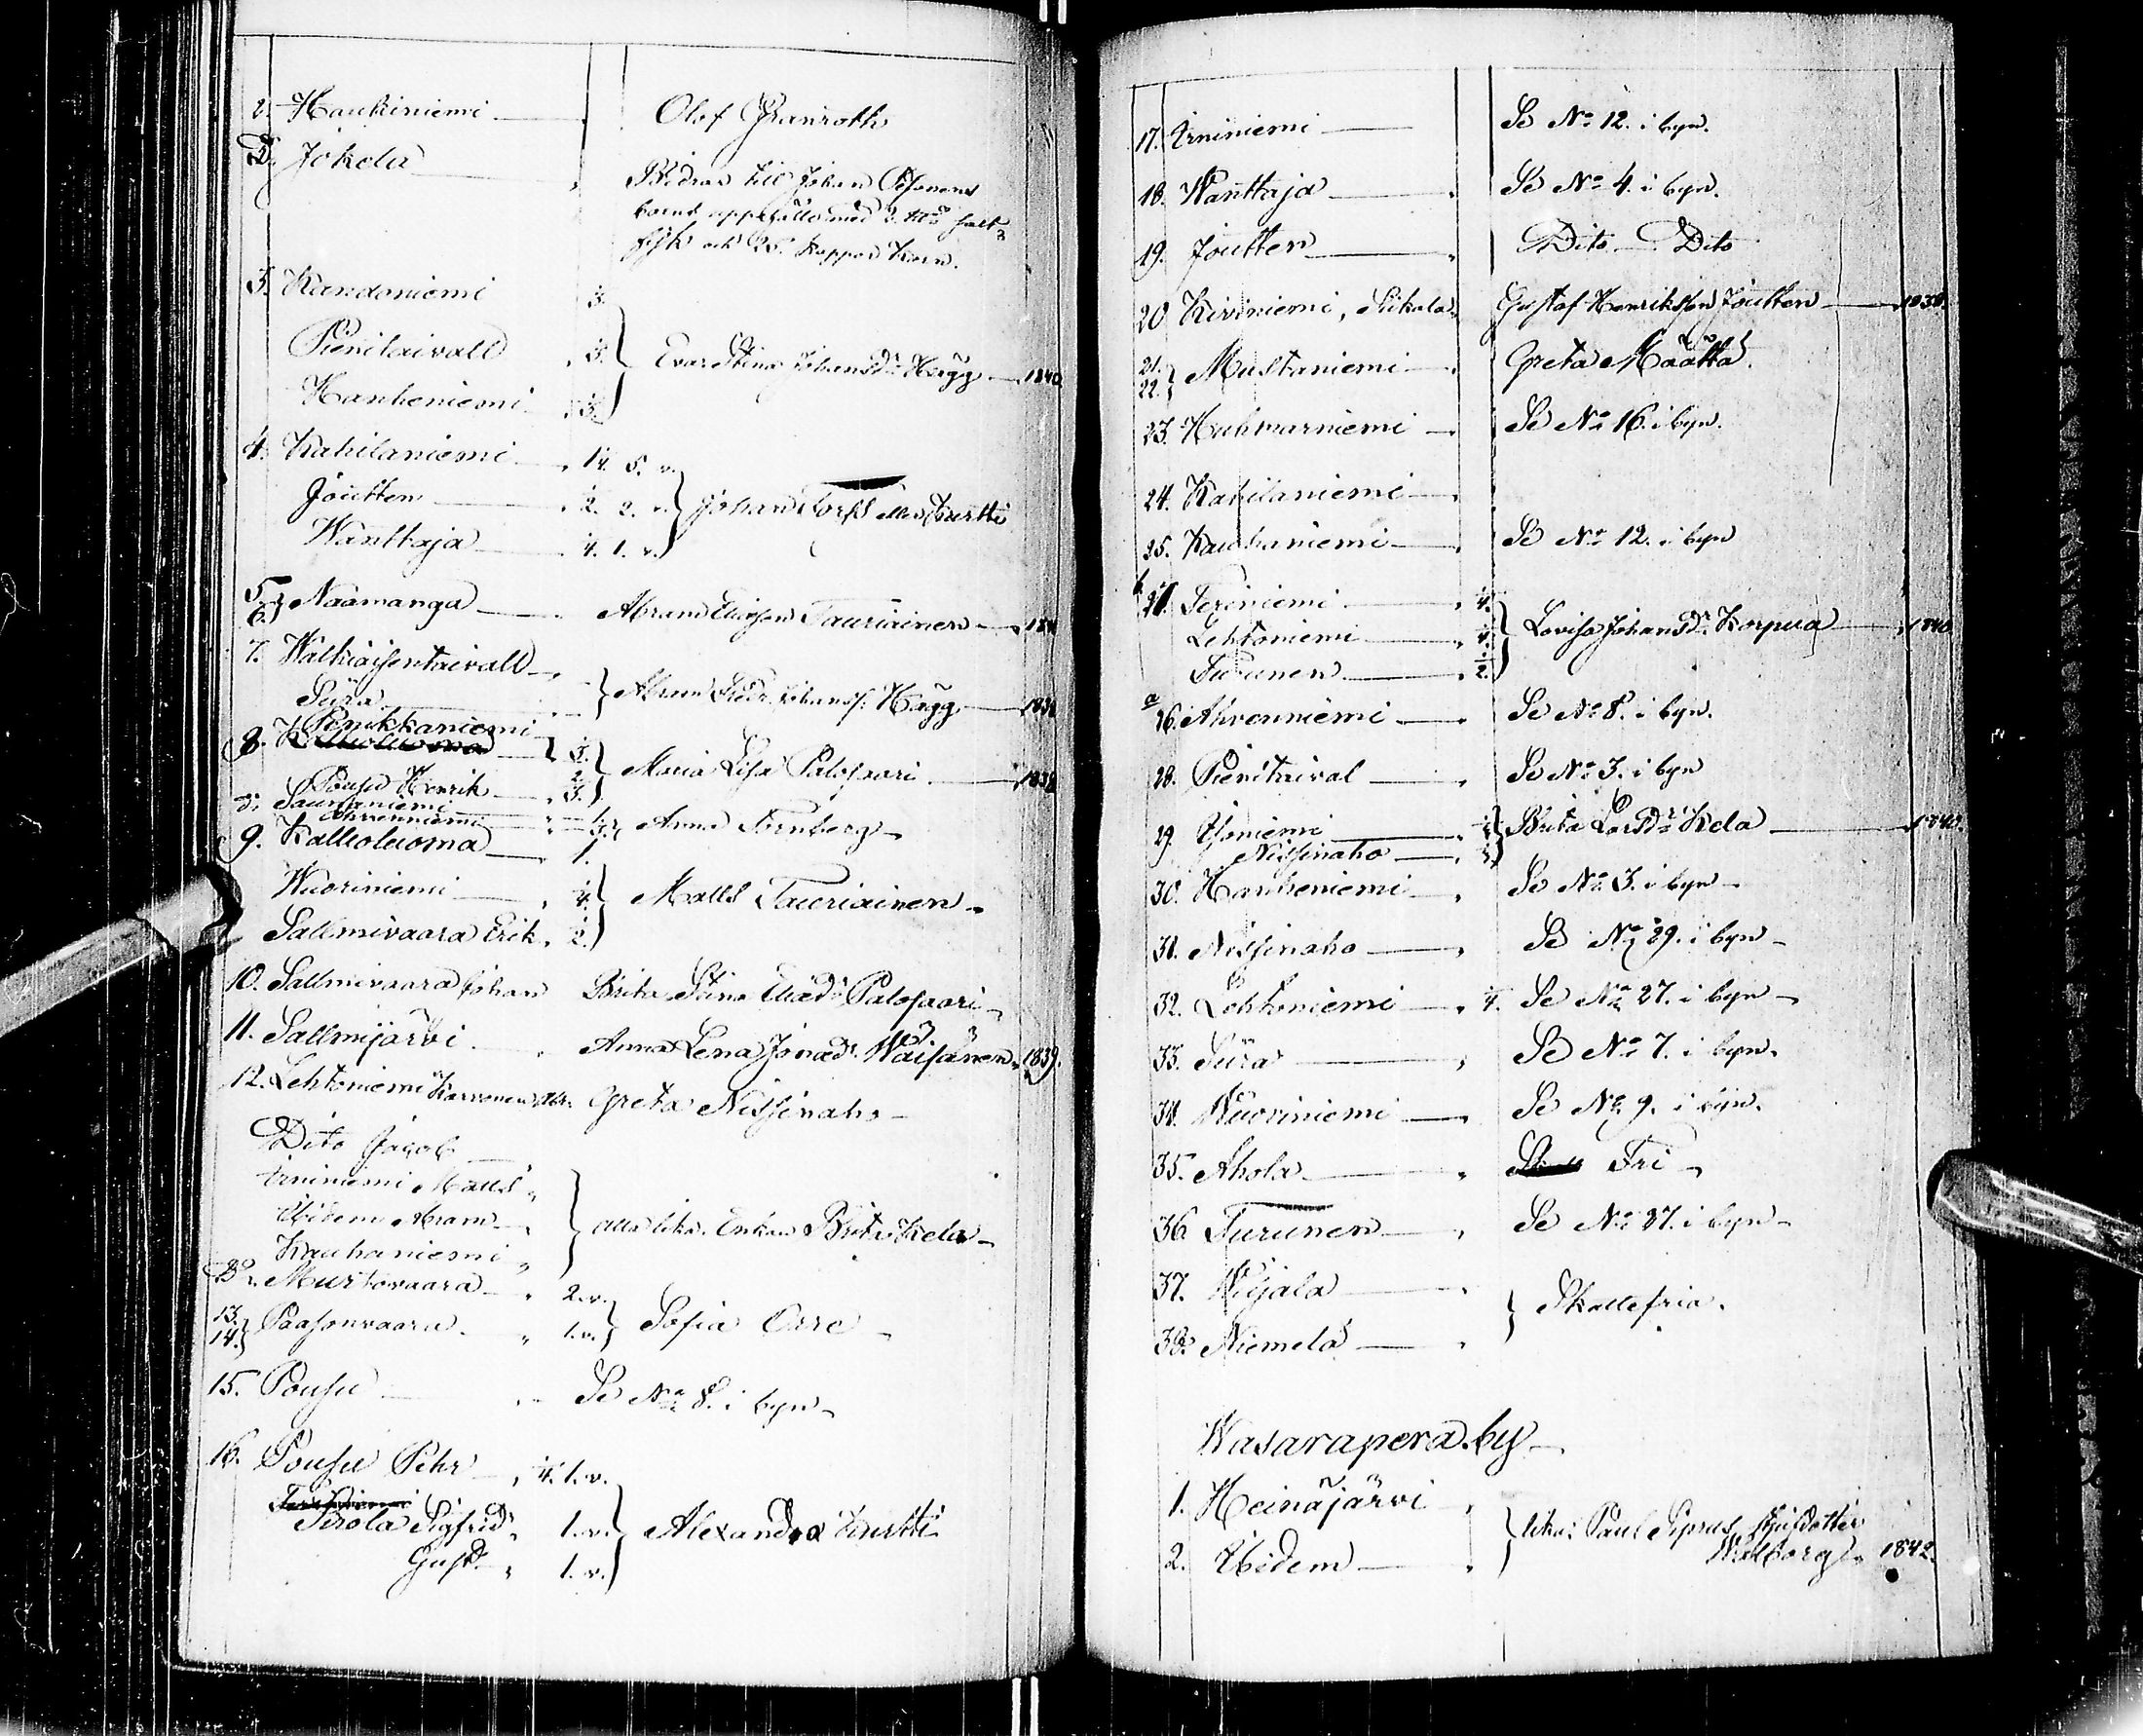 2. Haukiniemi Olof Granroth
D:o Jokela Bidrar till Johan Pesonens
boende uppehälle med 2. salt-
fisk och 25. kappor korn.
3. Kandoniemi 1/3.
Pienitaivall 1/3. Eva Stina Johansd:r Hägg 1840
Hanheniemi 1/3.
4. Kahilaniemi 1/4. 5. v.
Joutten 1/2. 2. v. Johan Forss eller Kurtti
Wanttaja 1/4. 1. v.
5. 6. Naamanga Abram Eliasson Tauriainen
7. Walkiaisentaivall
Siira Abram Johanss: Hägg
Penikkaniemi
8. Kallioluoma 1/3.
Pousu Henrik 2/3. Maria Lisa Palosaari 1838
D:o Saunaniemi
Ahvenniemi Anna Törnberg
9. Kallioluoma 1.
Wuoriniemi 1/4. Matts Tauriainen
Sallmivaara Erik 1/2.
10. Sallmivaara Johan Brita Stina Eliæd:r Palosaari
11. Sallmijärvi Anna Lena Jonæd:r Wäisänen 1839.
12. Lehtoniemi Karvonen Greta Nissinaho
Dito Jacob
Irniniemi Matts
Ibidem Abram alla lika. Enkan Brita Kela
Kauhaniemi
D:o Murtovaara 2. v.
13. 14. Paasonvaara 1. v. Sofia Orre
15. Pousu Se No 8. i byn
16. Pousu Pehr 1/4. 1. v.
Pirola Sigfrid 1. v. Alexandra Kurtti
Gust. 1. v.
17. Irniniemi Se No 12. i byn.
18. Wanttaja Se No 4. i byn.
19. Joutten Dito Dito
20 Kiviniemi, Siikala Gustaf Henriksson Joutten
21. 22. Mustaniemi Greta Määttä.
23. Huhmarniemi Se No 16. i byn.
24. Kahilaniemi
25. Kauhaniemi Se No 12. i byn
b 27. Teriniemi 1/4.
Lehtoniemi 1/4. Lovisa Johansd:r Korpua 1840
Turunen 1/2.
a 26. Ahvenniemi Se No 8. i byn.
28. Pienitaival Se No 3. i byn
29. Isoniemi Brita Larsd:r Kela 1840.
Nissinaho
30. Hanheniemi Se No 3. i byn
31. Nissinaho Se No 29. i byn
32. Lehtoniemi 1/4. Se No 27. i byn
33. Siira Se No 7. i byn.
34. Wuoriniemi Se No 9. i byn.
35. Ahola Fri
36 Turunen Se No 27. i byn
37. Wiljala
38. Niemelä Skattefria.
Wasarapera by
1. Heinäjärvi lika: Paul Siprus styfdotter
2. Ibidem Walborg 1842.